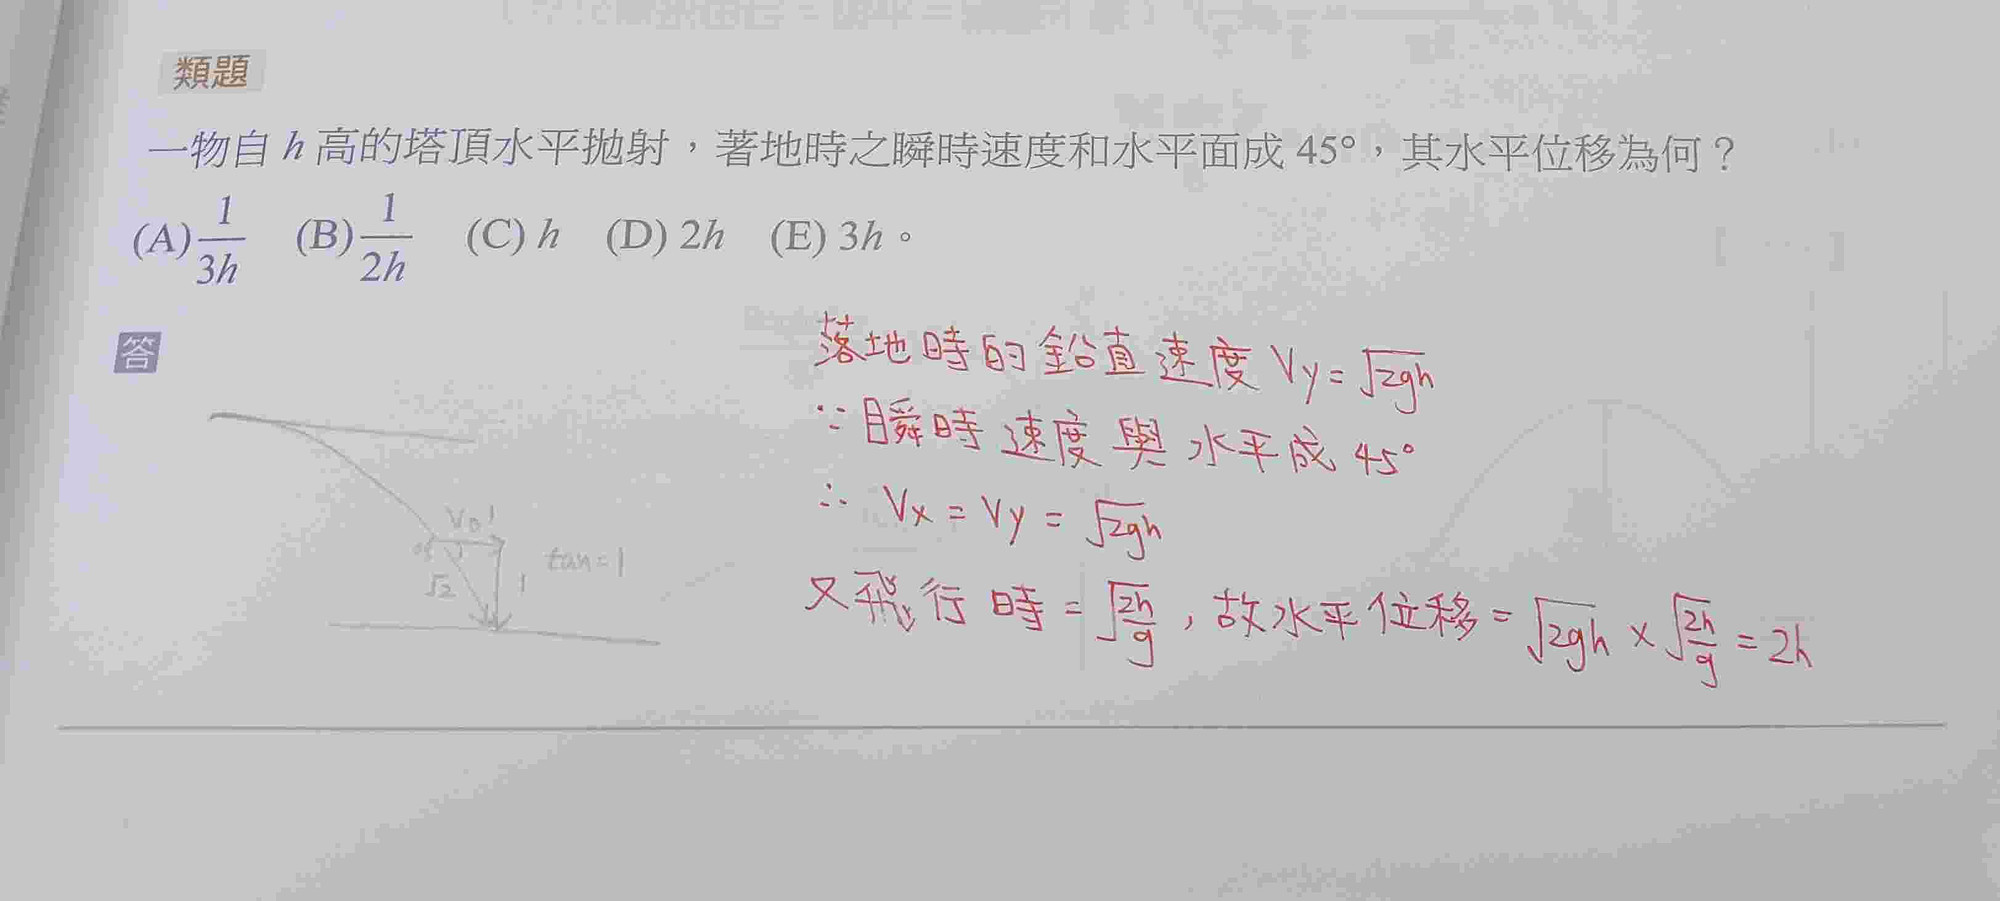 類題
一物自 h 高的塔頂水平拋射，著地時之瞬時速度和水平面成 45°，其水平位移為何？
(A) 1/3h (B) 1/2h (C) h (D) 2h (E) 3h。
答
落地時的鉛直速度 Vy = √2gh
∵ 瞬時速度與水平成 45°
∴ Vx = Vy = √2gh
又飛行時 = √2h/g，故水平位移 = √2gh × √2h/g = 2h
V₀ 1
tan = 1
√2 1